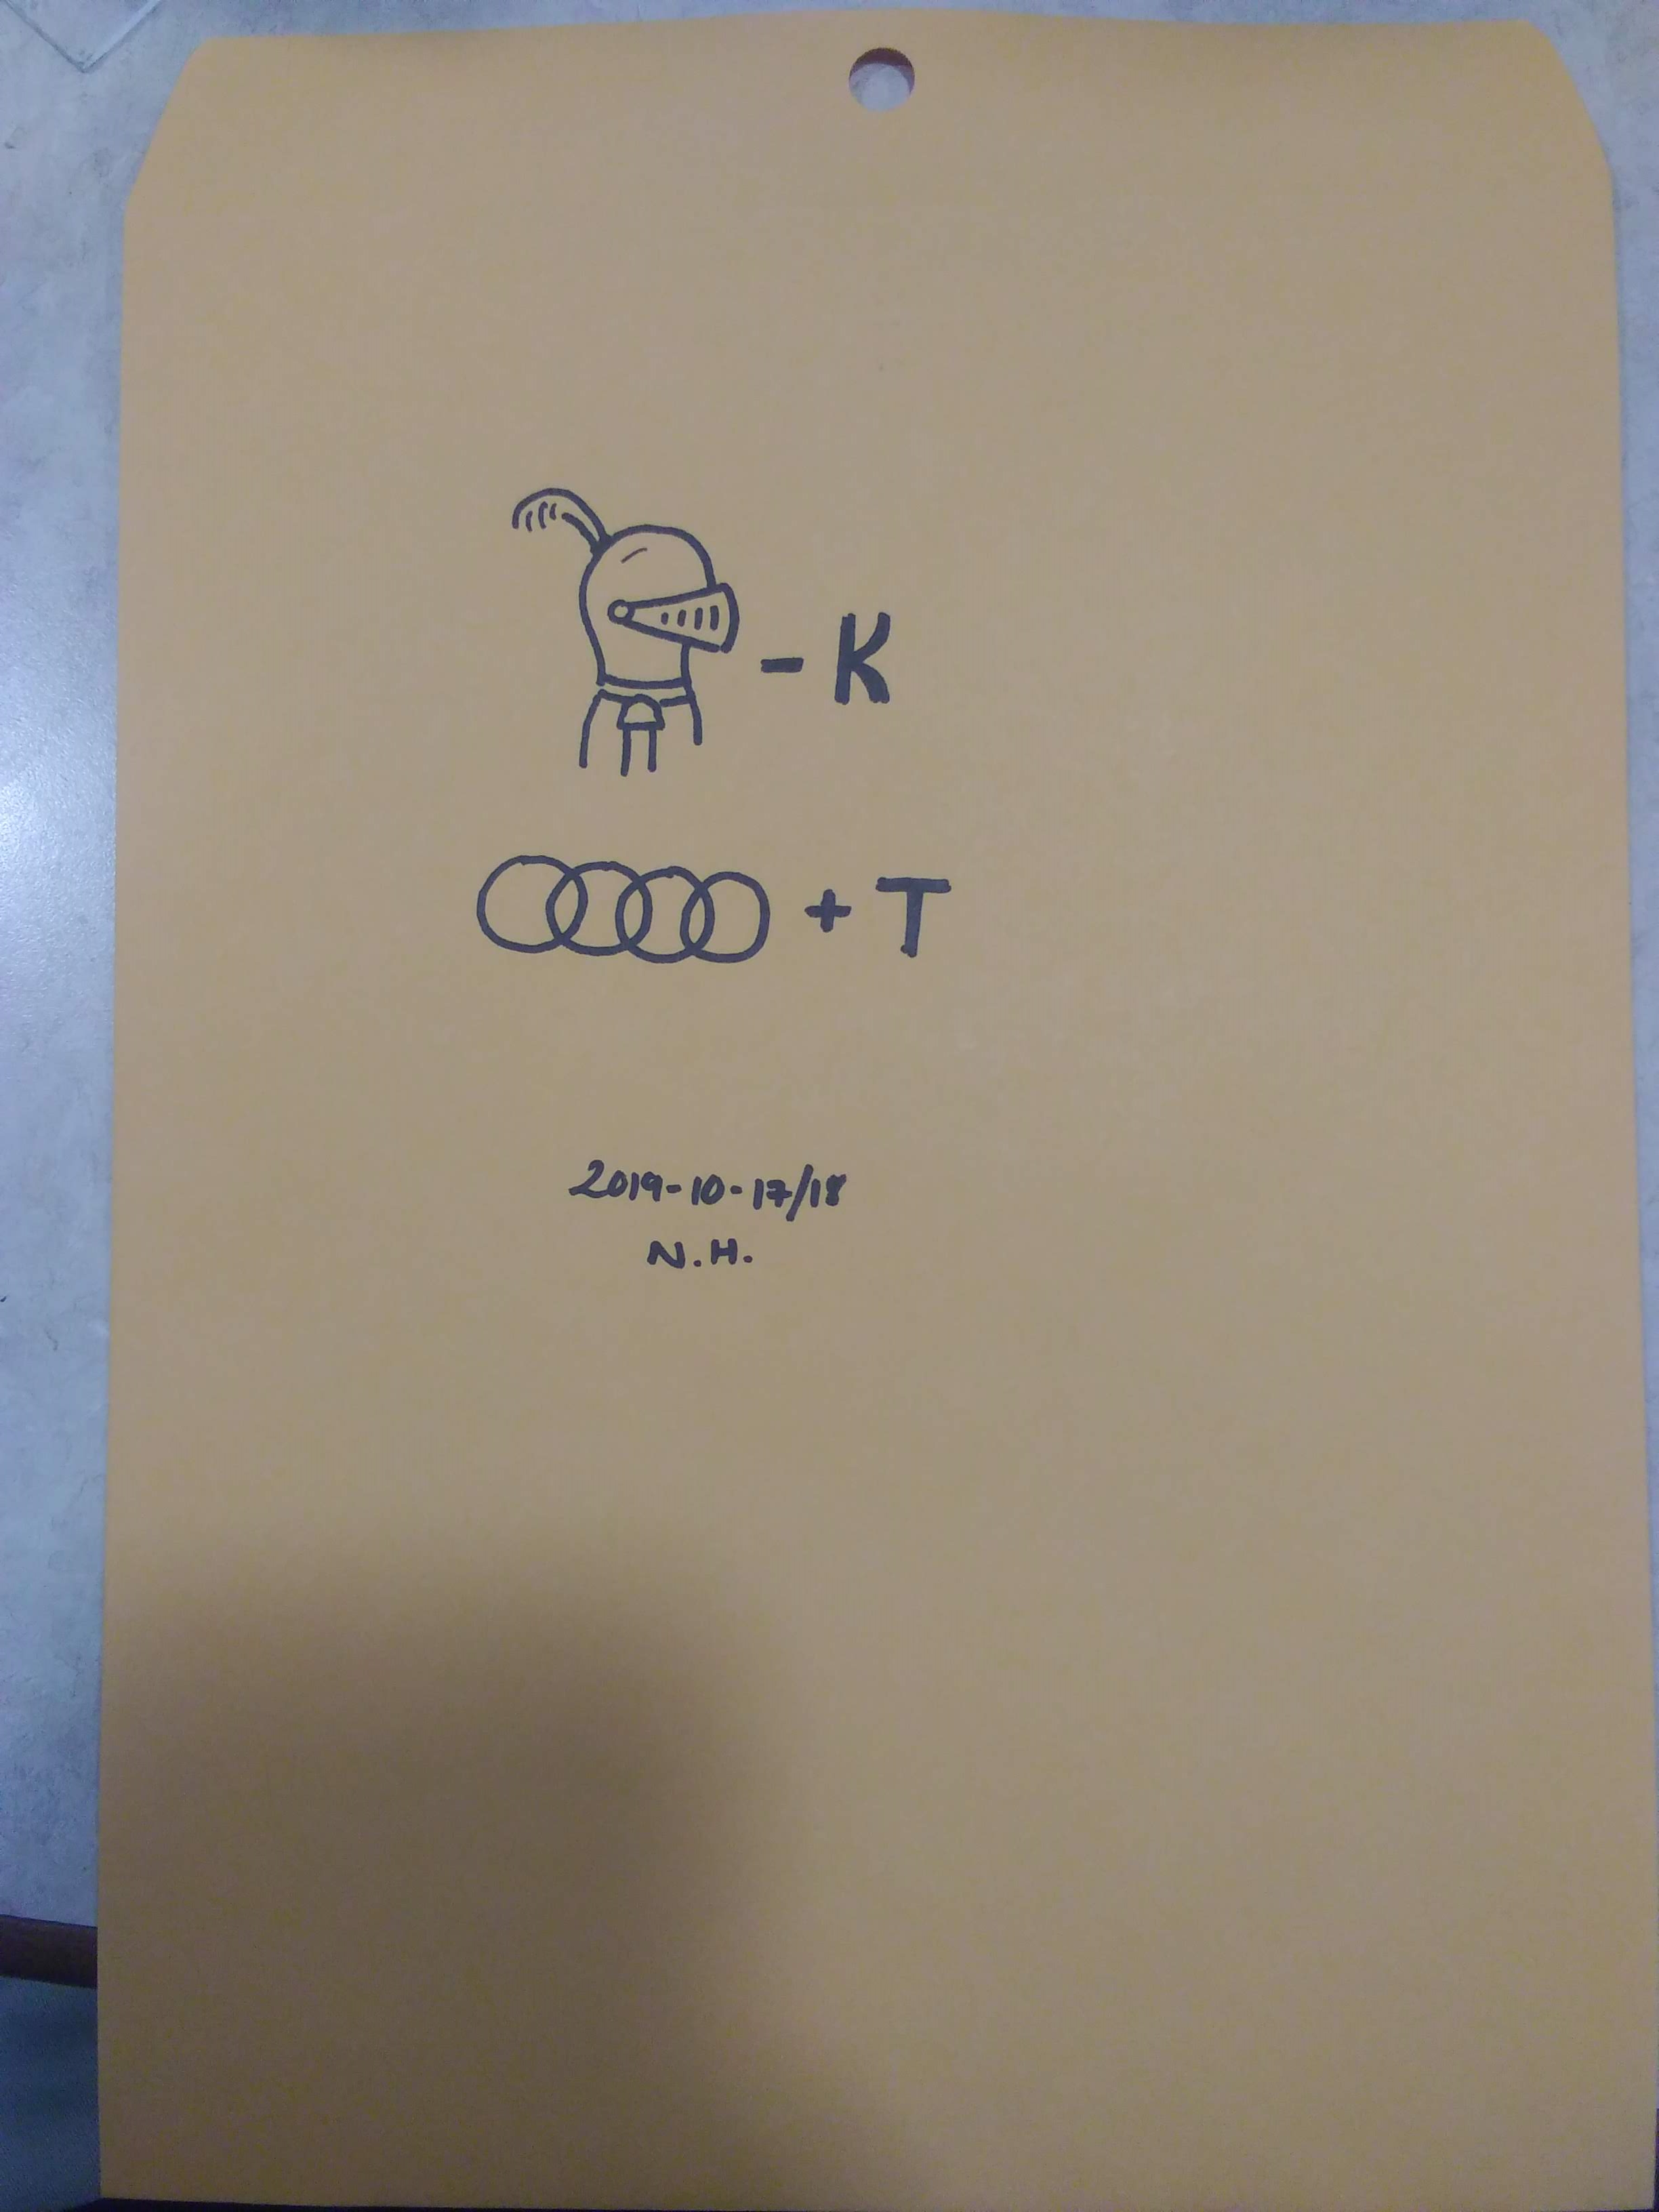 - K
+ T
2019-10-17/18
N.H.